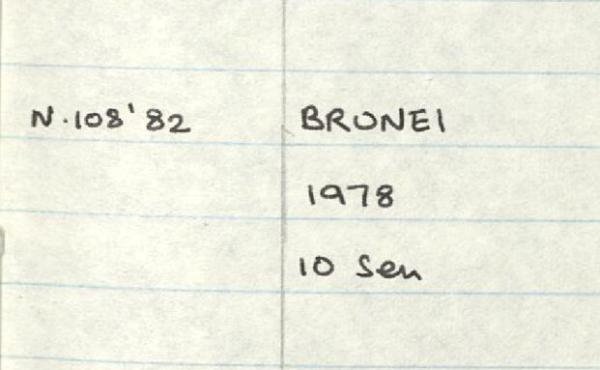 N.108'82 BRUNEI
1978
10 Sen